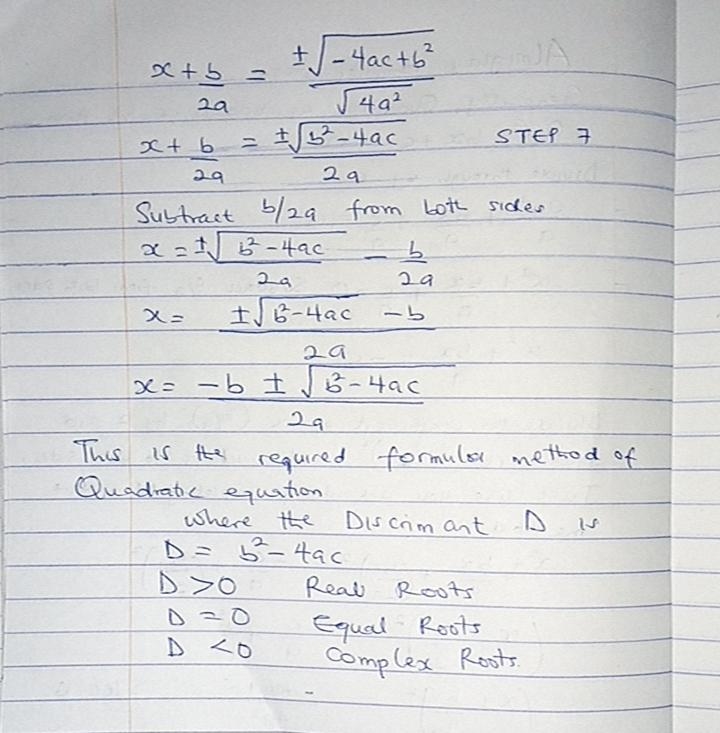 x + b/2a = ±√(-4ac+b²)/√4a²
x + b/2a = ±√(b²-4ac)/2a STEP 7
Subtract b/2a from both sides
x = ±√(b²-4ac)/2a - b/2a
x = (±√(b²-4ac) - b)/2a
x = (-b ± √(b²-4ac))/2a
This is the required formular method of
Quadratic equation
where the Discrimant D is
D = b²-4ac
D >0 Real Roots
D =0 Equal Roots
D <0 Complex Roots.